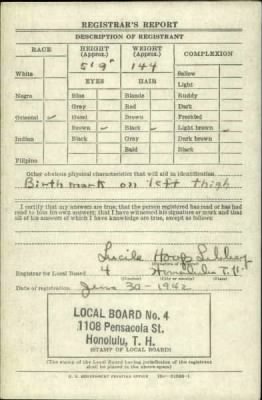 REGISTRAR'S REPORT
DESCRIPTION OF REGISTRANT
RACE HEIGHT (Approx.) WEIGHT (Approx.) COMPLEXION
5' 9" 144
White Sallow
EYES HAIR Light
Negro Blue Blonde Ruddy
Gray Red Dark
Oriental ✓ Hazel Brown Freckled
Brown ✓ Black ✓ Light brown ✓
Indian Black Gray Dark brown
Bald Black
Filipino
Other obvious physical characteristics that will aid in identification
Birthmark on left thigh
I certify that my answers are true; that the person registered has read or has
had read to him his own answers; that I have witnessed his signature or mark and that
all of his answers of which I have knowledge are true, except as follows:
Lucile Hoop
(Signature of registrar)
Registrar for Local Board 4 Honolulu T. H.
(Number) (City or county) (State)
Date of registration June 30 - 1942
LOCAL BOARD No. 4
1108 Pensacola St.
Honolulu, T. H.
(STAMP OF LOCAL BOARD)
(The stamp of the Local Board having jurisdiction of the registrant
shall be placed in the above space)
U. S. GOVERNMENT PRINTING OFFICE